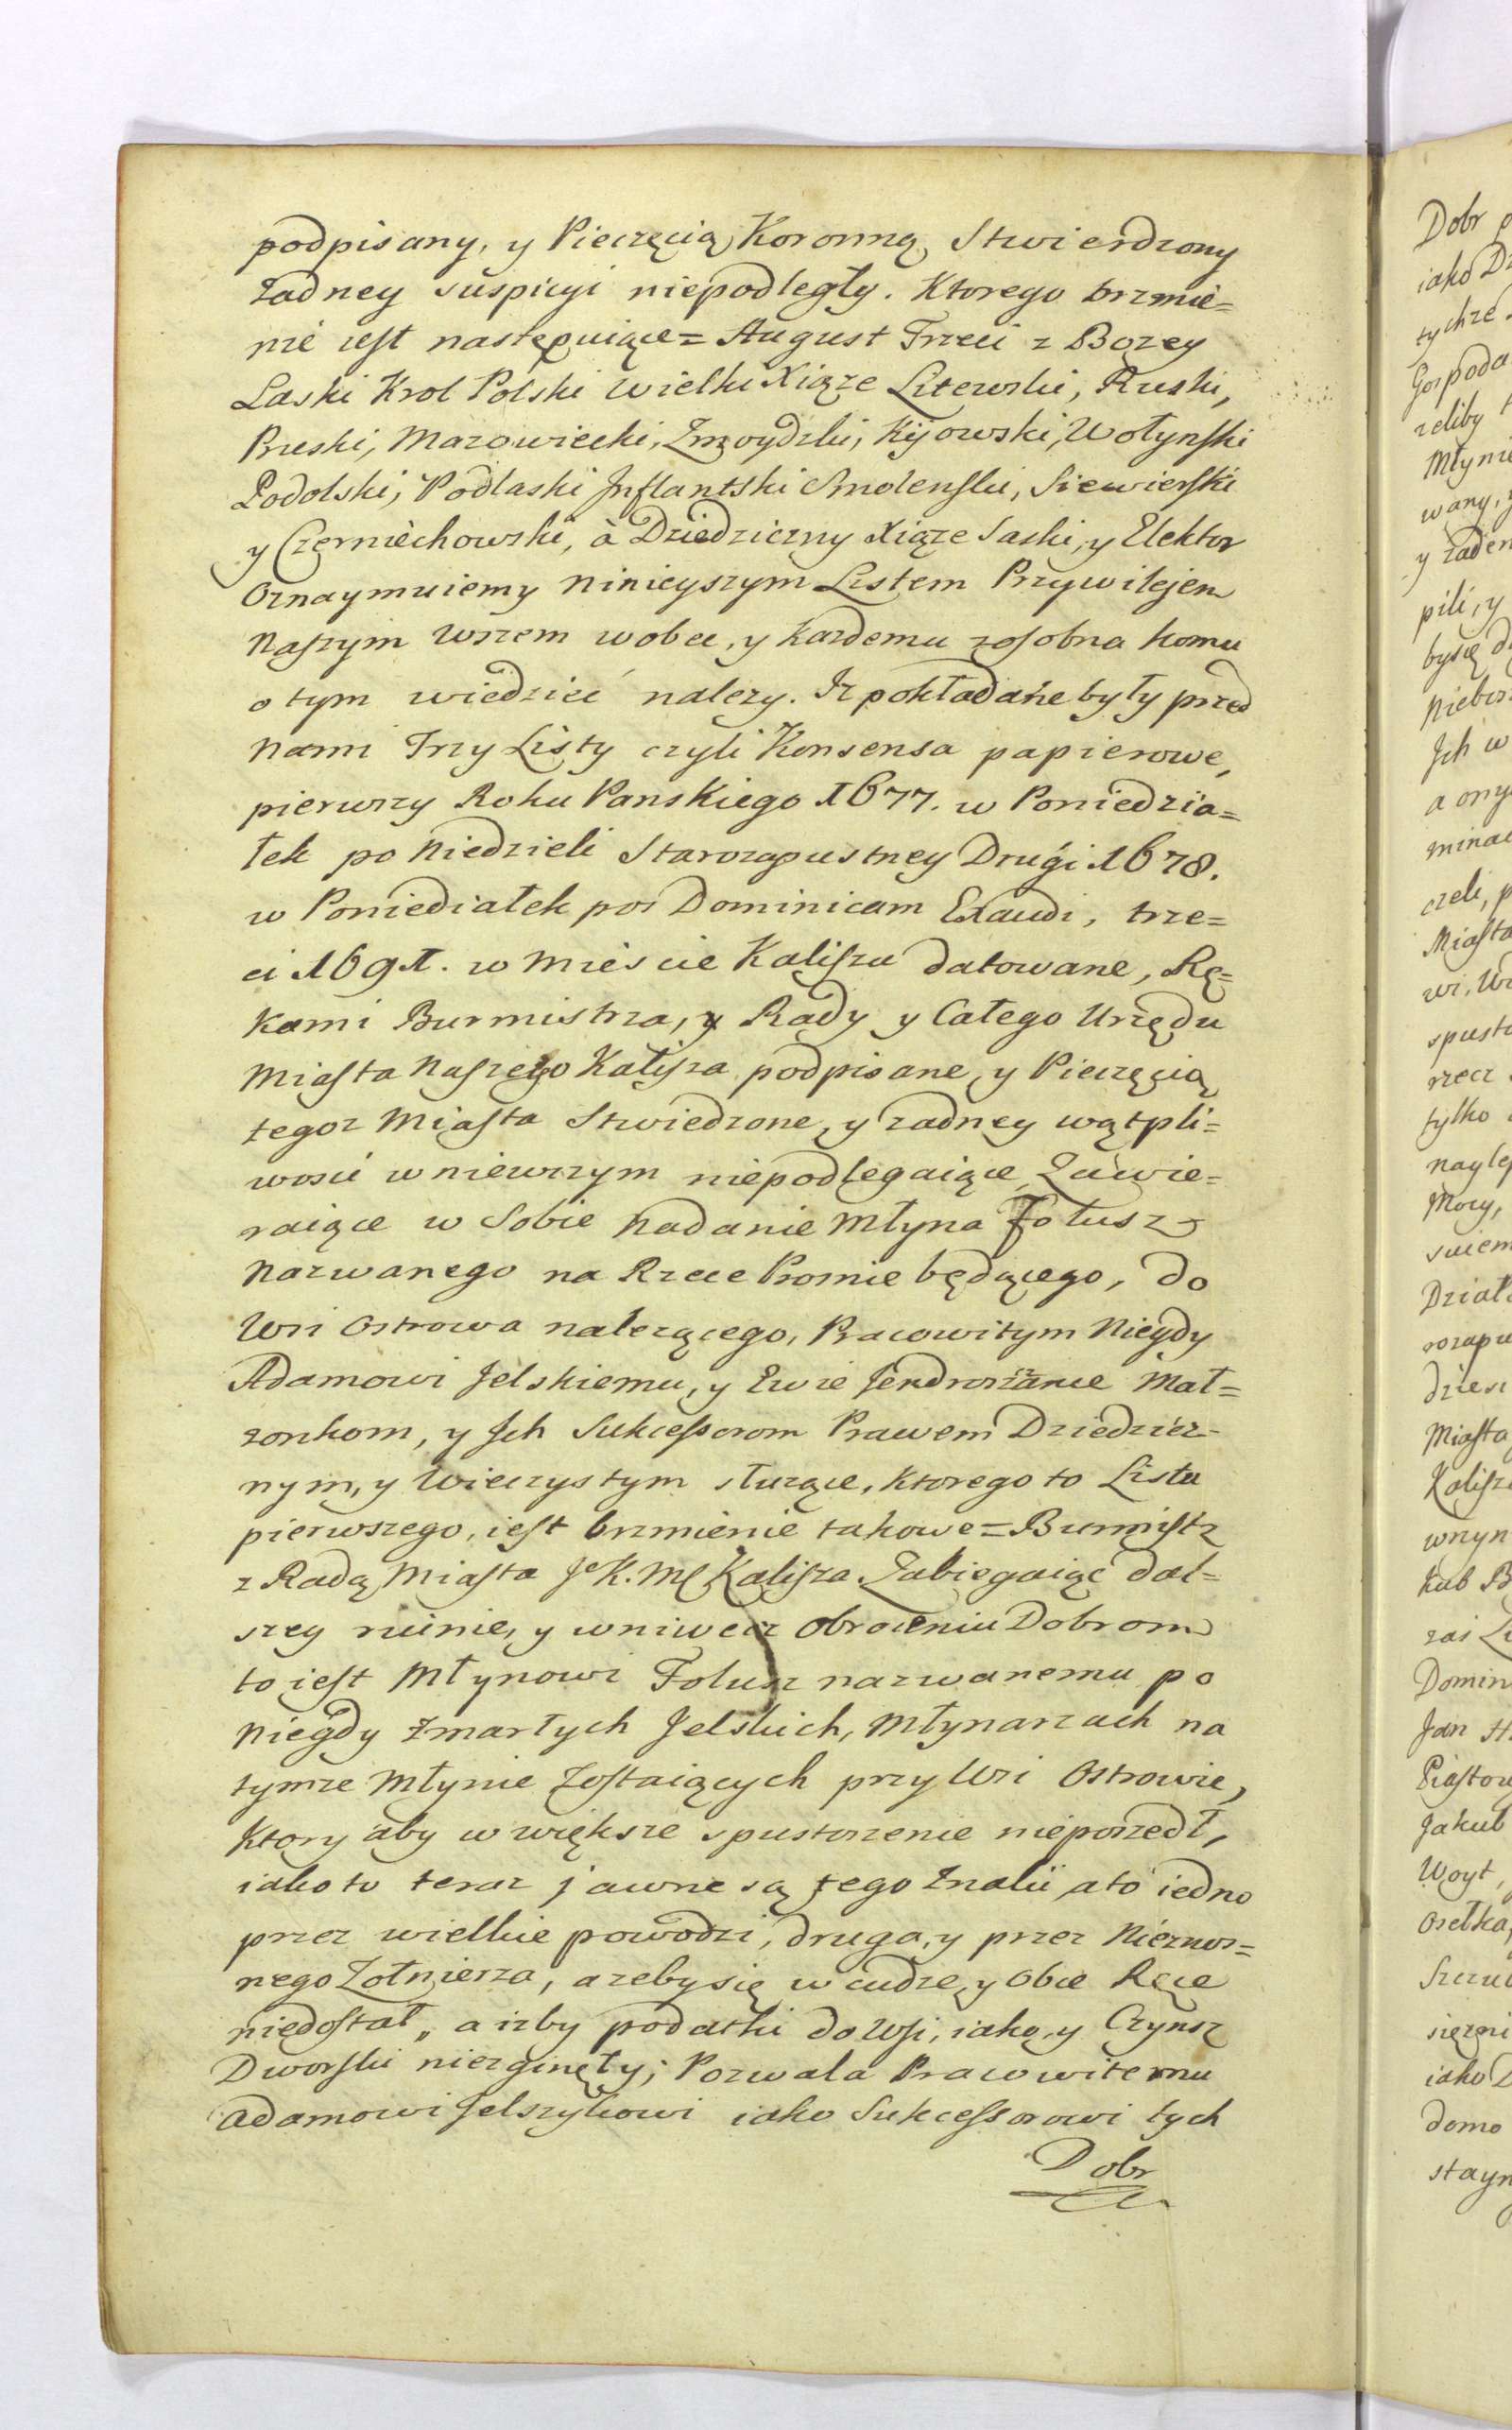 podpisany, y Pieczęcią Koronną Stwierdzony
żadney suspicyi niepodległy. Ktorego brzmie=
nie iest następuiące= August Trzeci z Bozey
Łaski Krol Polski Wielki Xiąze Litewski, Ruski,
Pruski, Mazowiecki, Zmoydzki, Kijowski, Wołynski
Podolski, Podlaski Inflantski Smolenski, Siewierski
y Czerniechowski, à Dziedziczny Xiąze Saski, y Elektor
Oznaymuiemy Ninieyszym Listem Przywilejem
Naszym wszem wobec, y kazdemu zosobna komu
o tym wiedzieć nalezy. Iz pokładane były przed
Nami Trzy Listy czyli Konsensa papierowe,
pierwszy Roku Panskiego 1677. w Poniedzia=
łek po Niedzieli Starozapustney Drugi 1678.
w Poniediałek pos Dominicam Exaudi, trze=
ci 1691. w Mieście Kaliszu datowane, Rę=
kami Burmistrza, y Rady y Całego Urzędu
Miasta Naszego Kalisza podpisane, y Pieczęcią
tegoz Miasta Stwiedzone, y zadney wątpli=
wosci wniewczym niepodlegaiące Zawie=
raiące w Sobie Nadanie Młyna Fołusz
Nazwanego na Rzece Prosnie będącego, do
Wsi Ostrowa nalezącego, Pracowitym Niegdy
Adamowi Jelskiemu, y Ewie Jendroszance Mał=
zonkom, y Ich Sukcessorom Prawem Dziedzicz-
nym, y Wieczystym słuzące, Ktorego to Listu
pierwszego, iest brzmienie takowe= Burmistz
z Radą Miasta JK.Mć Kalisza Zabiegaiąc dal=
szey ruinie, y wniwecz Obroceniu Dobrom
to iest Młynowi Folusz nazwanemu po
Niegdy zmarłych Jelskich, Młynarzach na
tymze Młynie zostaiących przy Wsi Ostrowie,
Ktory aby w większe spustoszenie nieposzedł,
iako tu teraz jawne są tego znaki ato iedno
przez wielkie powodzi, druga, y przez Nieznos=
nego Zołnierza, azeby się w cudze, y Obce Ręce
niedostał, a izby podatki do Wsi, iako, y Czynsz
Dworski niezginęły; Pozwala Pracowitemu
Adamowi Jelszykowi iako Sukcessorowi tych
Dobr
Dobr
iako
tychze
Gospoda
zeliby
Młynie
wany,
y zaden
pili, y
bysię
Niebes
Ich w
a ony
minac
czeli,
Miasta
wi,
spusto
rzecz
tylko
nayle
Mocy,
swiem
Dział
rozapu
dzies
Miasta
Kalisz
wnyn
kub B
zas
Domin
Jan
Piastow
Jakub
Woyt,
Osełka
Szczu
sięzni
iako D
domo
stayn